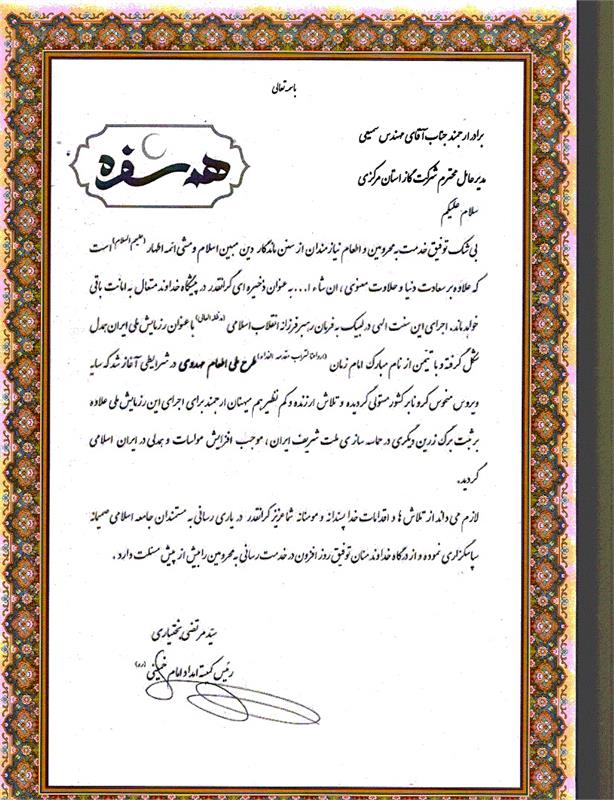 باسمه تعالی
برادر ارجمند جناب آقای مهندس سمیعی
همسفره
مدیرعامل محترم شرکت گاز استان مرکزی
سلام علیکم
بی شک توفیق خدمت به محرومین و اطعام نیازمندان از سنن ماندگار دین مبین اسلام و مشی ائمه اطهار (علیهم السلام) است
که علاوه بر سعادت دنیا و حلاوت معنوی ، ان شاء ا... به عنوان ذخیره ای گرانقدر در پیشگاه خداوند متعال به امانت باقی
خواهد ماند. اجرای این سنت الهی در لبیک به فرمان رهبر فرزانه انقلاب اسلامی (مدظله العالی) با عنوان رزمایش ملی ایران همدل
شکل گرفته و با تیمن از نام مبارک امام زمان (ارواحنا لتراب مقدمه الفداه) طرح ملی اطعام مهدوی در شرایطی آغاز شد که سایه
ویروس منحوس کرونا بر کشور مستولی گردیده و تلاش ارزنده و کم نظیر هم میهنان ارجمند برای اجرای این رزمایش ملی علاوه
بر ثبت برگ زرین دیگری در حماسه سازی ملت شریف ایران ، موجب افزایش مواسات و همدلی در ایران اسلامی
گردید.
لازم می داند از تلاش ها و اقدامات خداپسندانه و مومنانه شما عزیز گرانقدر در یاری رسانی به مستمندان جامعه اسلامی صمیمانه
سپاسگزاری نموده و از درگاه خداوند منان توفیق روز افزون در خدمت رسانی به محرومین را بیش از پیش مسئلت دارد .
سید مرتضی بختیاری
رئیس کمیته امداد امام خمینی (ره)